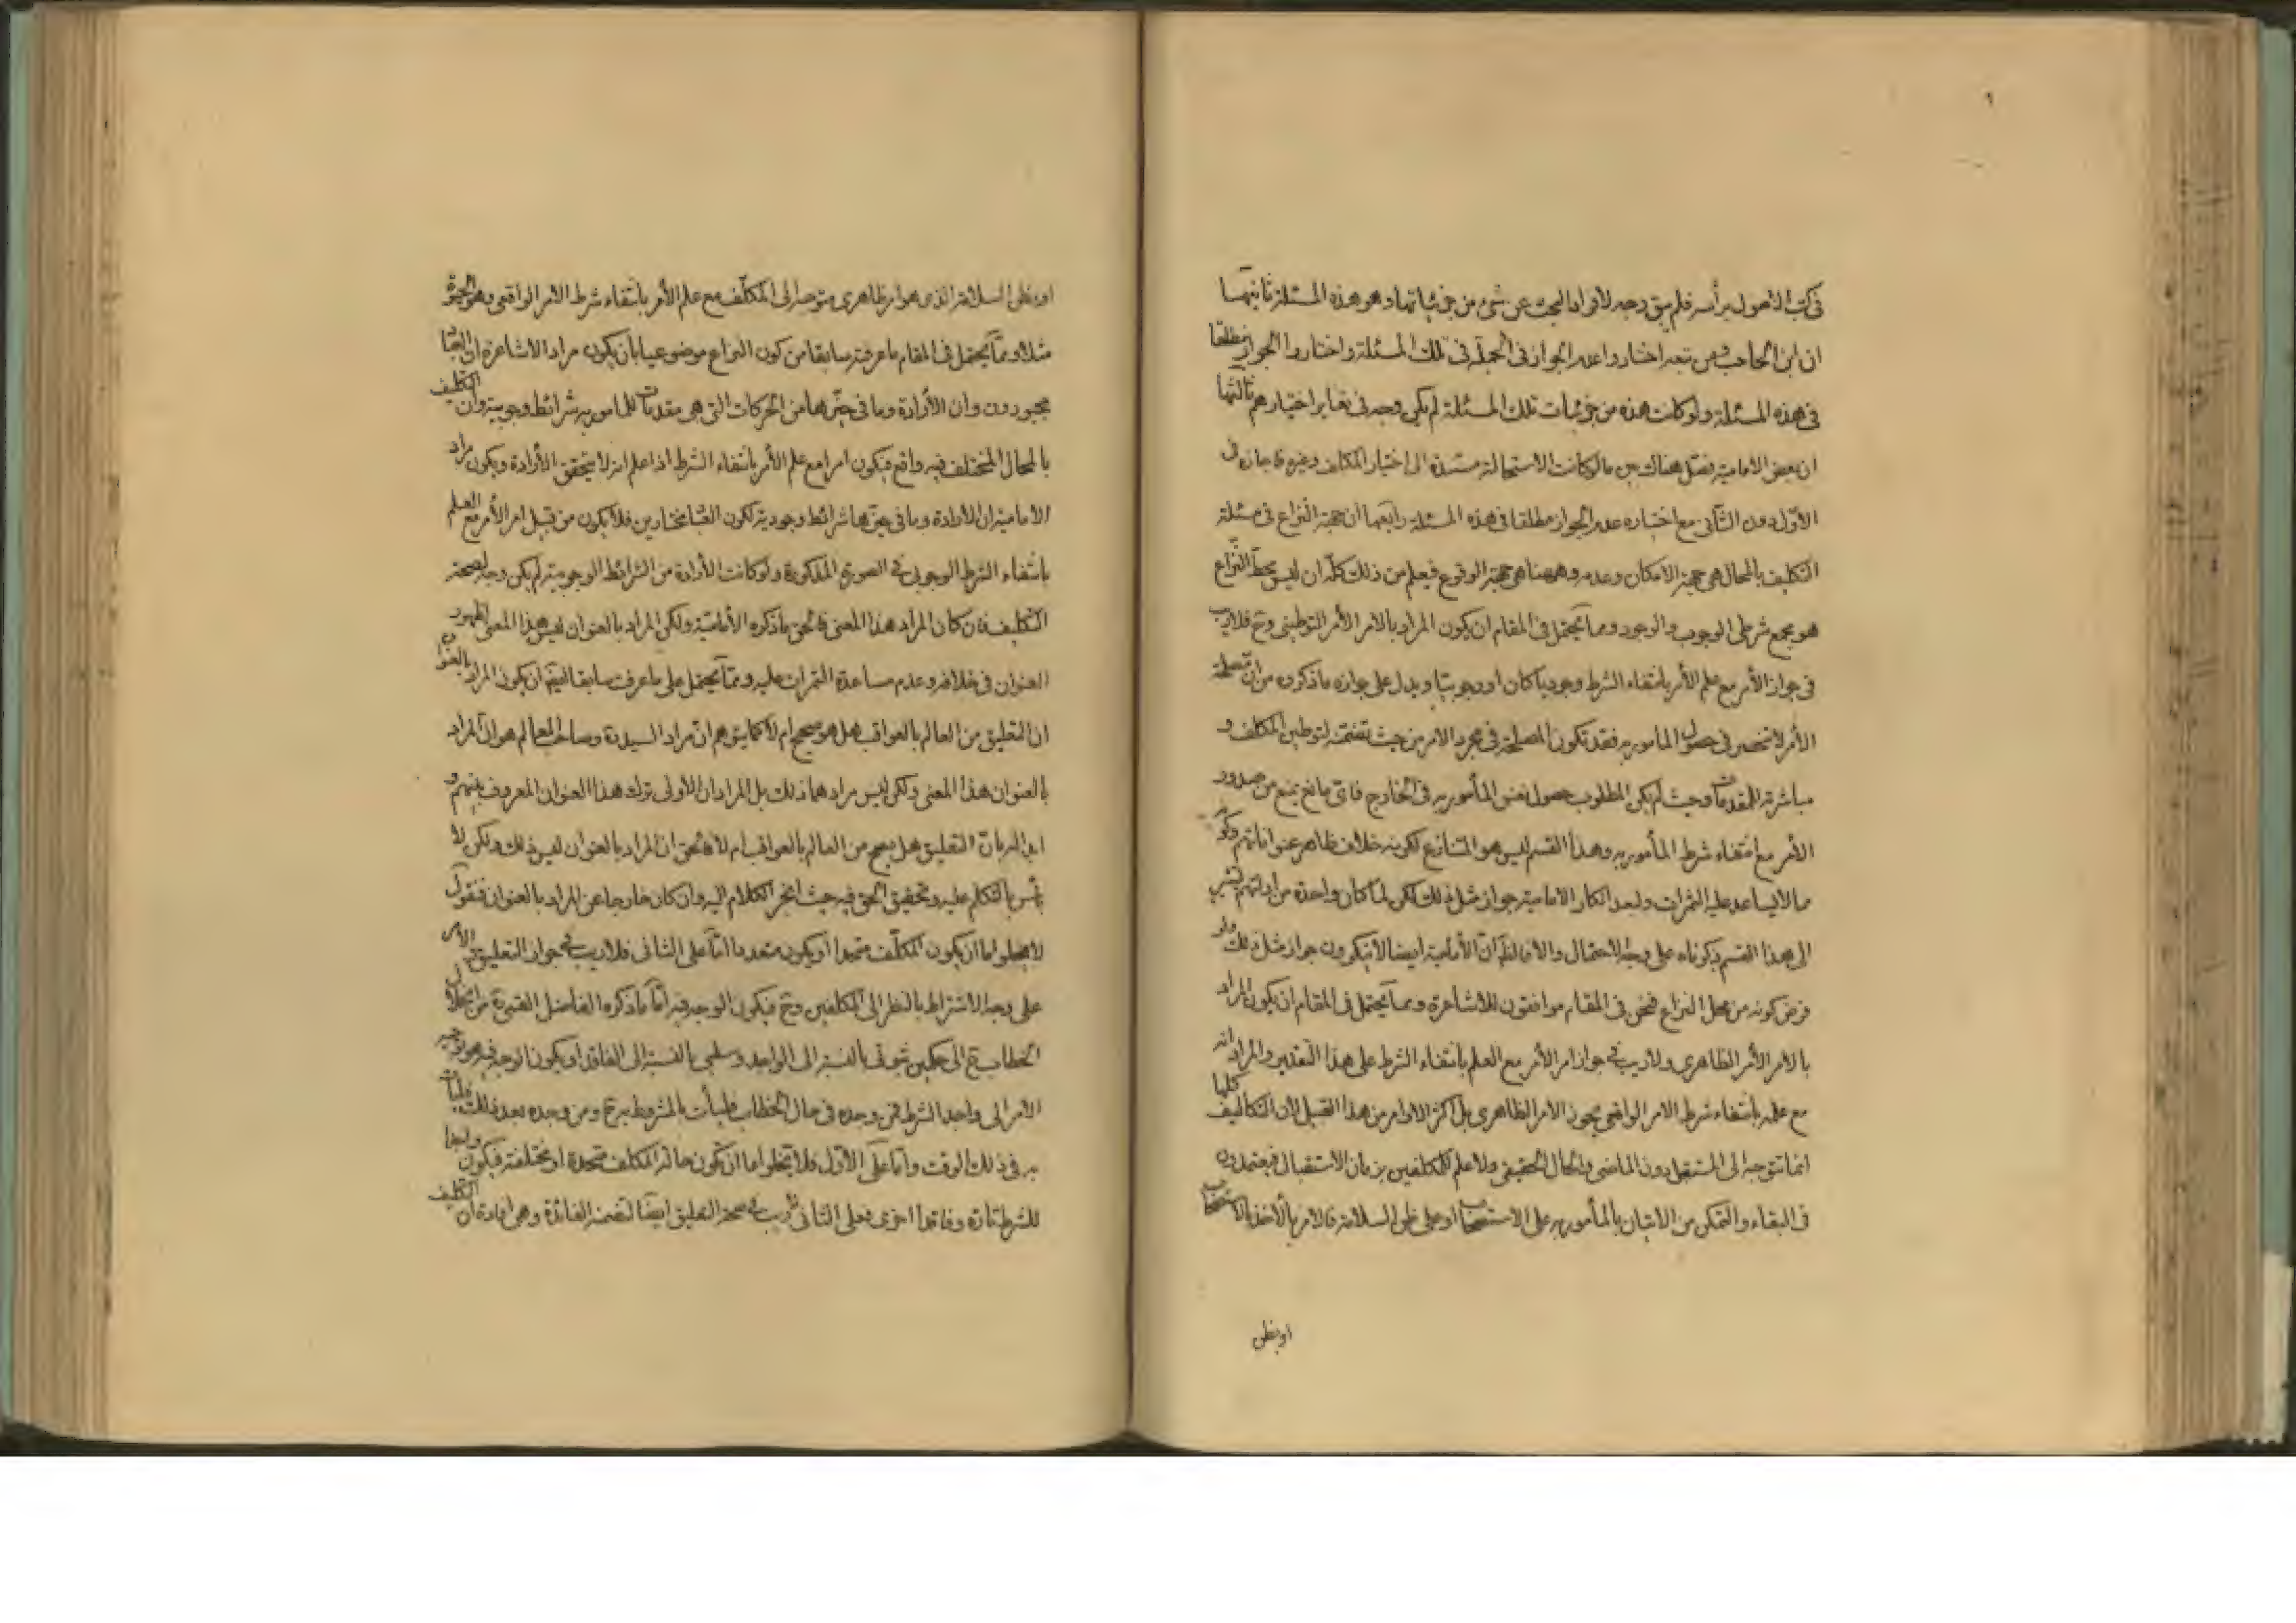 في كتب الاصول برأسه فلم يبق وجه لافراد البحث عن شيء من جزئياتها وهو هذه المسئلة ثانيتها
ان ابن الحاجب ومن تبعه اختاروا عدم الجواز في الجملة في تلك المسئلة واختاروا الجواز مطلقا
في هذه المسئلة ولو كانت هذه من جزئيات تلك المسئلة لم يكن وجه في تغاير اختيارهم ثالثتها
ان بعض الامامية فصل هناك بين ما لو كانت الاستحالة مستندة الى اختيار المكلف وغيره فاجازه في
الاول دون الثاني مع اختياره عدم الجواز مطلقا في هذه المسئلة رابعها ان جهة النزاع في مسئلة
التكليف بالمحال هي جهة الامكان وعدمه وههنا هي جهة الوقوع فيعلم من ذلك كله ان ليس محط النزاع
هو مجمع شرطي الوجوب والوجود ومما يحتمل في المقام ان يكون المراد بالامر الأمر التوطيني وح فلا ريب
في جواز الأمر مع علم الأمر بانتفاء الشرط وجوديا كان او وجوبيا ويدل على جوازه ما ذكروه من ان مصلحة
الأمر لا تنحصر في حصول المأمور به فقد تكون المصلحة في مجرد الامر من حيث تضمنه لتوطين المكلف و
مباشرته للمقدمات وحيث لم يكن المطلوب حصول نفس المأمور به في الخارج فاي مانع يمنع من صدور
الأمر مع انتفاء شرط المأمور به وهذا القسم ليس هو المتنازع لكونه خلاف ظاهر عنواناتهم وكونه
مما لا يساعد عليه الثمرات ولبعد انكار الامامية جواز مثل ذلك لكن لما كان واحدة من ادلتهم تشير
الى هذا القسم ذكرناه على وجه الاحتمال والا فالظ ان الأمامية ايضا لا ينكرون جواز مثل ذلك ولو
فرض كونه من محل النزاع فنحن في المقام موافقون للاشاعرة ومما يحتمل في المقام ان يكون المراد
بالامر الأمر الظاهري ولا ريب في جواز امر الأمر مع العلم بانتفاء الشرط على هذا التقدير والمراد انه
مع علمه بانتفاء شرط الامر الواقعي يجوز الامر الظاهري بل اكثر الاوامر من هذا القبيل لان التكاليف كلها
انما تتوجه الى المستقبل دون الماضي والحال الحقيقي ولا علم للمكلفين بزمان الاستقبال فيعتمدون
في البقاء والتمكن من الاتيان بالمأمور به على الاستصحاب او على ظن السلامة فالامر بالأخذ بالاستصحاب
او بظن
او بظن السلامة الذي هو امر ظاهري متوجه الى المكلف مع علم الأمر بانتفاء شرط الامر الواقعي وهو الحيوة
مثلا ومما يحتمل في المقام ما عرفته سابقا من كون النزاع موضوعيا بان يكون مراد الاشاعرة ان العباد
مجبورون وان الأرادة وما في حيزها من الحركات التي هي مقدمات للمامور به شرائط وجوبية وان التكليف
بالمحال المختلف فيه واقع فيكون امرا مع علم الأمر بانتفاء الشرط اذا علم انه لا يتحقق الأرادة ويكون مراد
الامامية ان الأرادة وما في حيزها شرائط وجودية لكون العباد مختارين فلا يكون من قبيل امر الأمر مع العلم
بانتفاء الشرط الوجوبي في الصورة المذكورة ولو كانت الأرادة من الشرائط الوجوبية لم يكن وجه لصحة
التكليف فان كان المراد هذا المعنى فالحق ما ذكره الأمامية ولكن المراد بالعنوان ليس هذا المعنى لظهور
العنوان في خلافه وعدم مساعدة الثمرات عليه ومما يحتمل على ما عرفت سابقا ان يكون المراد بالعنوان
ان التعليق من العالم بالعواقب هل هو صحيح ام لا كما يتوهم ان مراد السيد ره وصاحب المعالم هو ان المراد
بالعنوان هذا المعنى ولكن ليس مرادهما ذلك بل المراد ان الأولى ترك هذا العنوان المعروف بينهم و
التعليق هل يصح من العالم بالعواقب ام لا فالحق ان المراد بالعنوان ليس ذلك ولكن لا
بأس بالتكلم عليه وتحقيق الحق فيه حيث انجر الكلام اليه وان كان خارجا عن المراد بالعنوان فنقول
لا يخلو اما ان يكون المكلف متحدا او يكون متعددا اما على الثاني فلا ريب في جواز التعليق في الأمر
على وجه الاشتراط بالنظر الى المكلفين وح فيكون الوجه فيه اما ما ذكره الفاضل القمي ره من انحلال
الخطاب ح الى حكمين ثبوتي بالنسبة الى الواجد وسلبي بالنسبة الى الفاقد او يكون الوجه فيه هو توجيه
الامر الى واجد الشرط فمن وجده في حال الخطاب فليأت بالمشروط به ح ومن وجده بعد ذلك فليأت
به في ذلك الوقت واما على الأول فلا يخلو اما ان يكون حالة المكلف متحدة او مختلفة فيكون واجدا
للشرط تارة وفاقدا اخرى فعلى الثاني لا ريب في صحة التعليق ايضا لتضمنه الفائدة وهي افادة ان التكليف